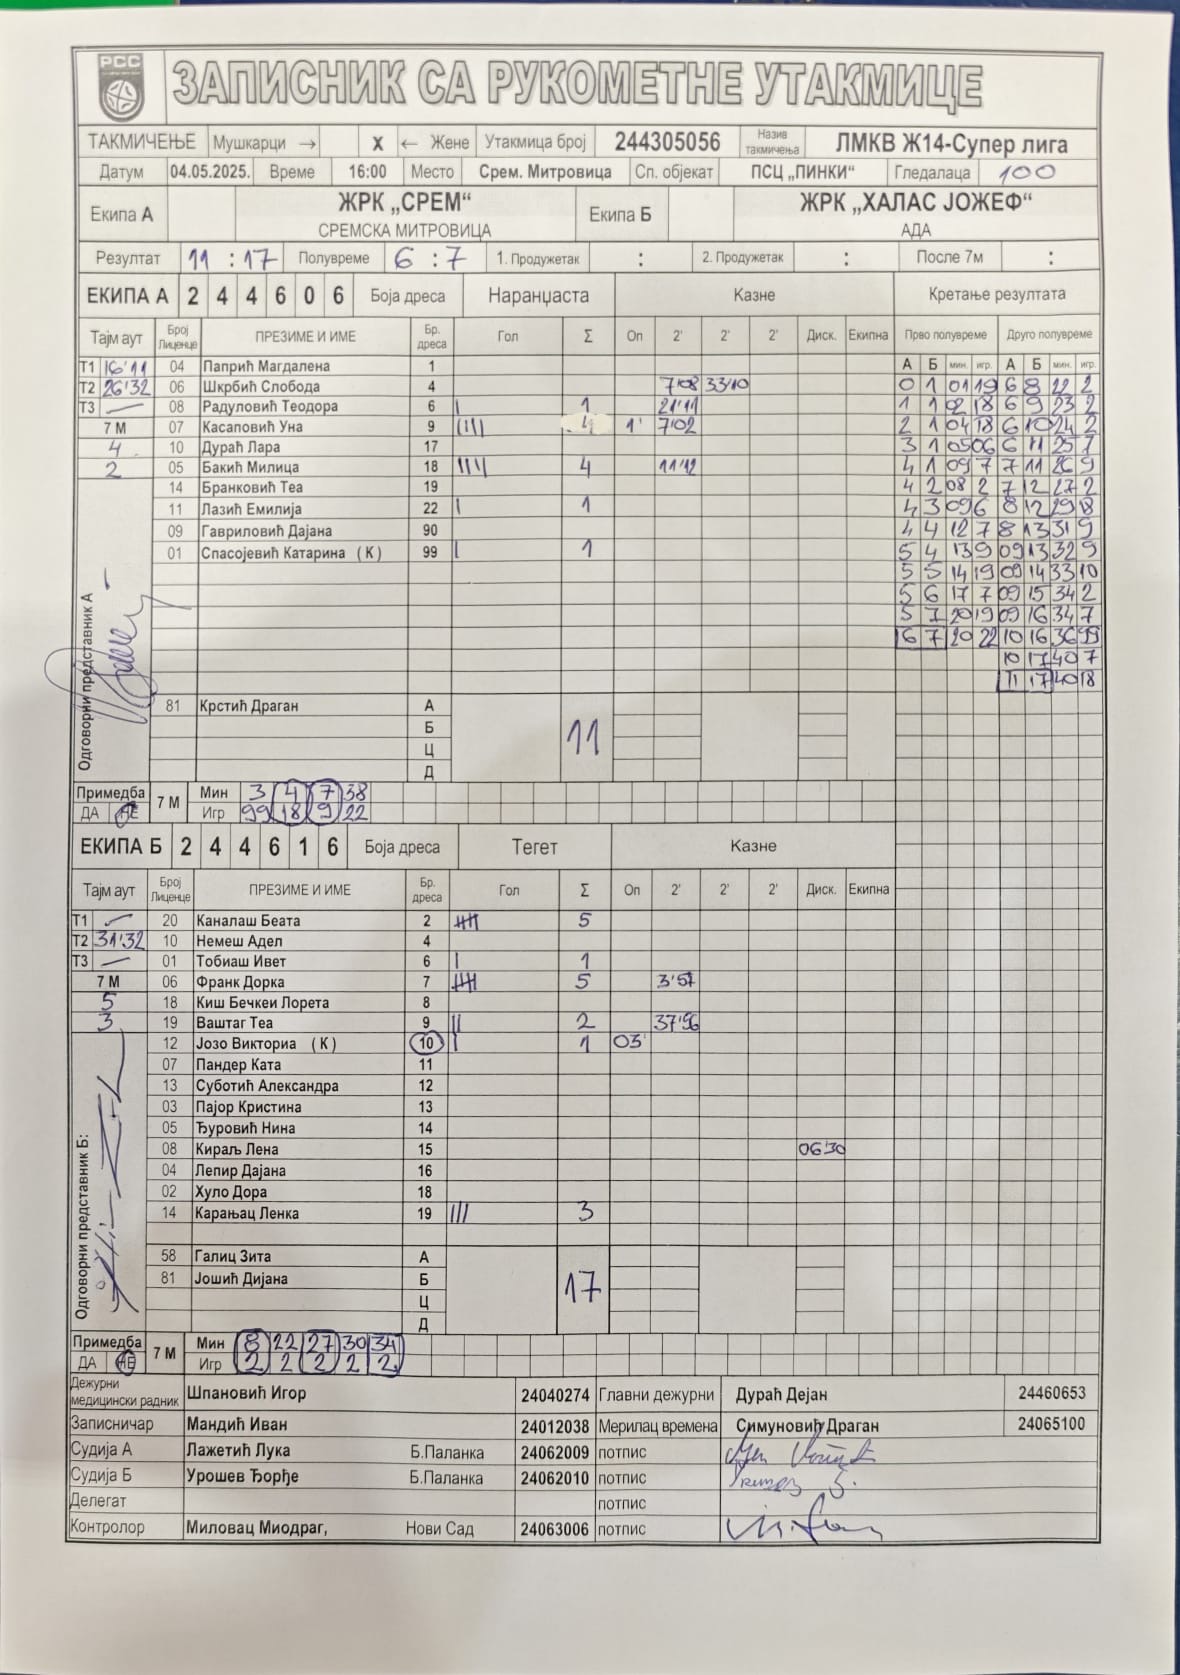 РСС
ЗАПИСНИК СА РУКОМЕТНЕ УТАКМИЦЕ
ТАКМИЧЕЊЕ Мушкарци → X ← Жене Утакмица број 244305056 Назив такмичења ЛМКВ Ж14-Супер лига
Датум 04.05.2025. Време 16:00 Место Срем. Митровица Сп. објекат ПСЦ „ПИНКИ“ Гледалаца 100
Екипа А ЖРК „СРЕМ“ Екипа Б ЖРК „ХАЛАС ЈОЖЕФ“
СРЕМСКА МИТРОВИЦА АДА
Резултат 11 : 17 Полувреме 6 : 7 1. Продужетак : 2. Продужетак : После 7м :
ЕКИПА А 2 4 4 6 0 6 Боја дреса Наранџаста Казне Кретање резултата
Тајм аут Број Лиценце ПРЕЗИМЕ И ИМЕ Бр. дреса Гол Σ Оп 2' 2' 2' Диск. Екипна Прво полувреме Друго полувреме
Т1 16'11 04 Папрић Магдалена 1 А Б мин. игр. А Б мин. игр.
Т2 26'32 06 Шкрбић Слобода 4 7'08 33'10 0 1 01 19 6 8 22 2
Т3 — 08 Радуловић Теодора 6 | 1 21'11 1 1 02 18 6 9 23 2
7 М 07 Касаповић Уна 9 |||| 4 1' 7'02 2 1 04 18 6 10 24 2
4 10 Дураћ Лара 17 3 1 05 06 6 11 25 7
2 05 Бакић Милица 18 |||| 4 11'12 4 1 09 7 7 11 26 9
14 Бранковић Теа 19 4 2 08 2 7 12 27 2
11 Лазић Емилија 22 | 1 4 3 09 6 8 12 29 18
09 Гавриловић Дајана 90 4 4 12 7 8 13 31 9
01 Спасојевић Катарина (К) 99 | 1 5 4 13 9 09 13 32 9
5 5 14 19 09 14 33 10
5 6 17 7 09 15 34 2
5 7 20 19 09 16 34 7
6 7 20 22 10 16 36 99
10 17 40 7
11 17 40 18
Одговорни представник А
81 Крстић Драган А
Б
11
Ц
Д
Примедба 7 М Мин 3 4 7 38
ДА НЕ Игр 99 18 9 22
ЕКИПА Б 2 4 4 6 1 6 Боја дреса Тегет Казне
Тајм аут Број Лиценце ПРЕЗИМЕ И ИМЕ Бр. дреса Гол Σ Оп 2' 2' 2' Диск. Екипна
Т1 — 20 Каналаш Беата 2 5
Т2 31'32 10 Немеш Адел 4
Т3 — 01 Тобиаш Ивет 6 | 1
7 М 06 Франк Дорка 7 5 3'57
5 18 Киш Бечкеи Лорета 8
3 19 Ваштаг Теа 9 || 2 37'56
12 Јозо Викториа (К) 10 | 1 03'
07 Пандер Ката 11
13 Суботић Александра 12
03 Пајор Кристина 13
05 Ђуровић Нина 14
08 Кираљ Лена 15 06'30
04 Лепир Дајана 16
02 Хуло Дора 18
14 Карањац Ленка 19 ||| 3
Одговорни представник Б:
58 Галиц Зита А
81 Јошић Дијана Б
17
Ц
Д
Примедба 7 М Мин 8 22 27 30 34
ДА НЕ Игр 2 2 2 2 2
Дежурни медицински радник Шпановић Игор 24040274 Главни дежурни Дураћ Дејан 24460653
Записничар Мандић Иван 24012038 Мерилац времена Симуновић Драган 24065100
Судија А Лажетић Лука Б.Паланка 24062009 потпис
Судија Б Урошев Ђорђе Б.Паланка 24062010 потпис
Делегат потпис
Контролор Миловац Миодраг, Нови Сад 24063006 потпис